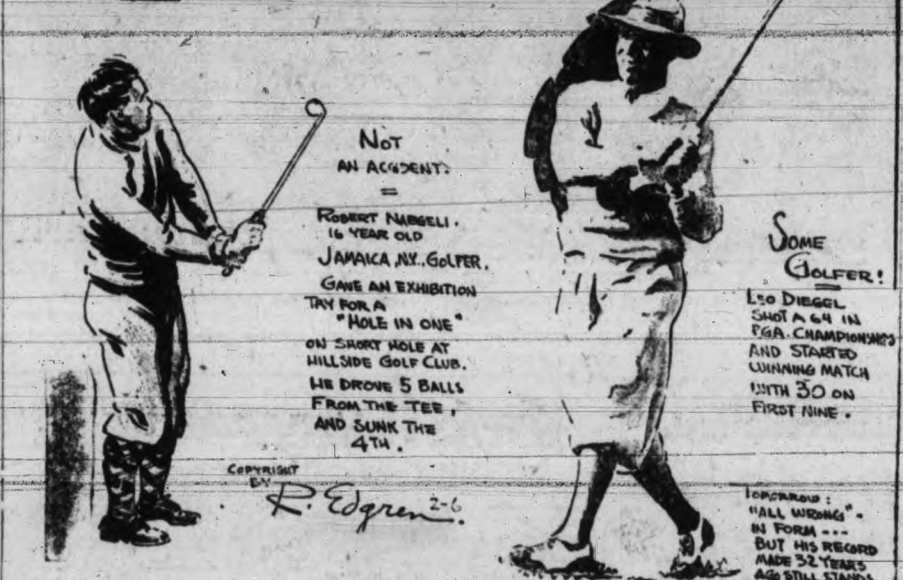 NOT
AN ACCIDENT.
=
ROBERT NAEGELI.
16 YEAR OLD
JAMAICA, N.Y. GOLFER.
GAVE AN EXHIBITION
TRY FOR A
"HOLE IN ONE"
ON SHORT HOLE AT
HILLSIDE GOLF CLUB.
HE DROVE 5 BALLS
FROM THE TEE,
AND SUNK THE
4TH.
COPYRIGHT
BY
R. Edgren 2-6
SOME
GOLFER!
LEO DIEGEL
SHOT A 64 IN
P.G.A. CHAMPIONSHIPS
AND STARTED
WINNING MATCH
WITH 30 ON
FIRST NINE.
TOMORROW:
"ALL WRONG".
IN FORM ---
BUT HIS RECORD
MADE 32 YEARS
AGO STILL STANDS